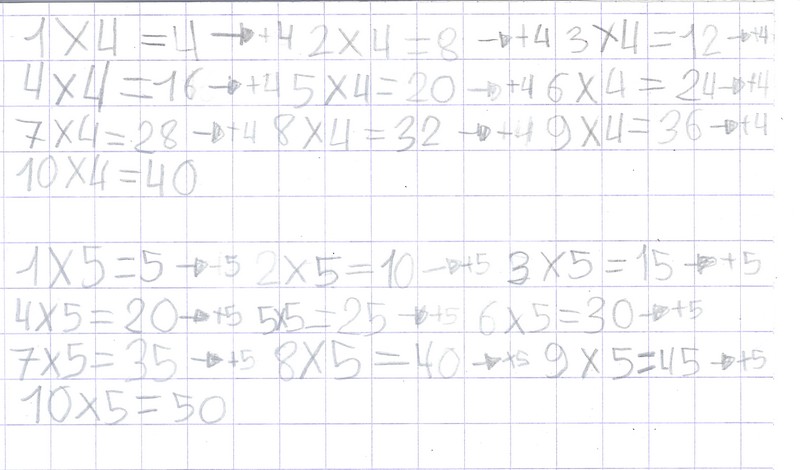 1×4=4→+4 2×4=8→+4 3×4=12→+4
4×4=16→+4 5×4=20→+4 6×4=24→+4
7×4=28→+4 8×4=32→+4 9×4=36→+4
10×4=40
1×5=5→+5 2×5=10→+5 3×5=15→+5
4×5=20→+5 5×5=25→+5 6×5=30→+5
7×5=35→+5 8×5=40→+5 9×5=45→+5
10×5=50